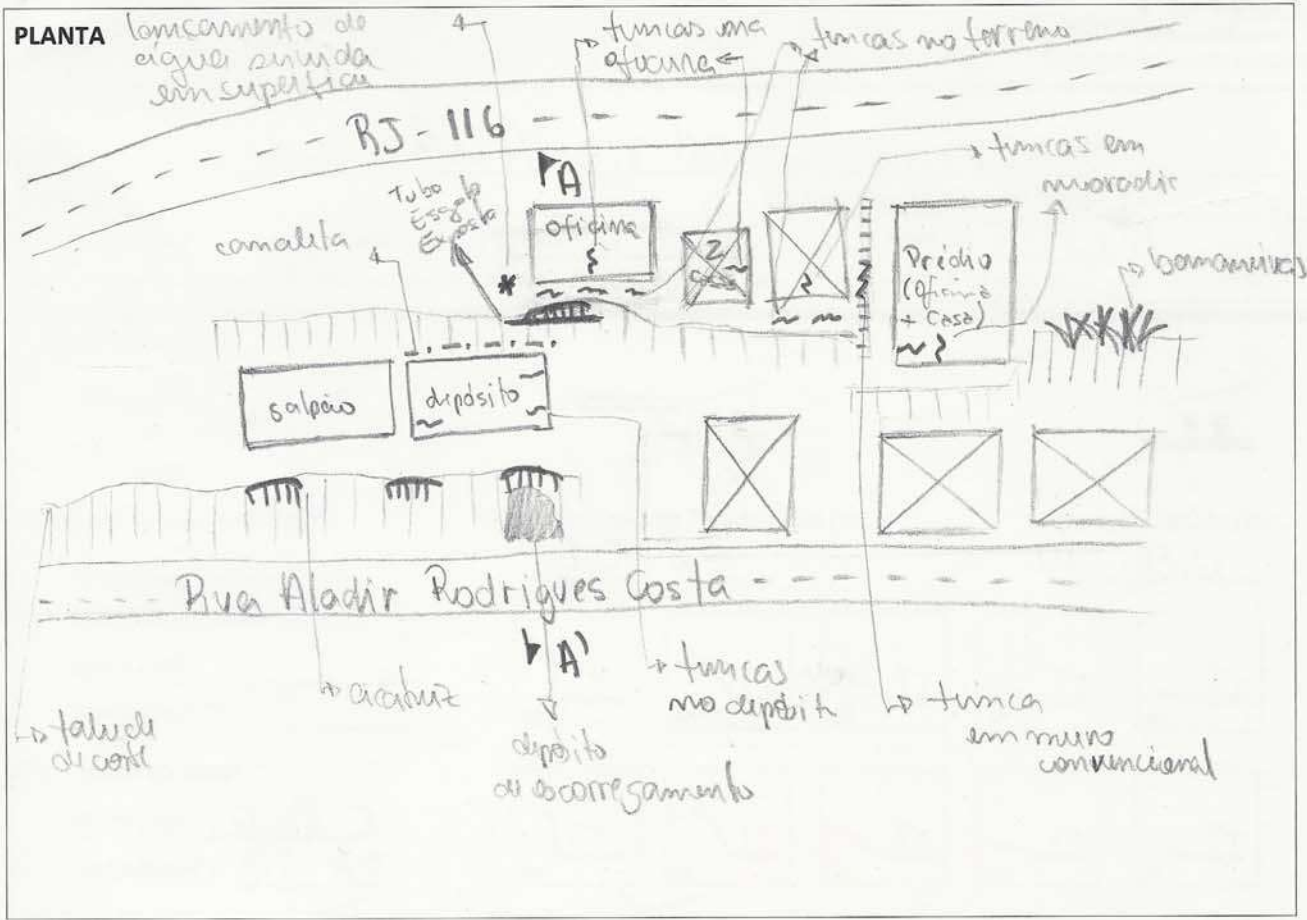 PLANTA
lançamento de
água servida
em superfície
trincas na
oficina
trincas no terreno
RJ-116
trincas em
moradia
Tubo
Esgoto
Exposto
A
canaleta
oficina
2
casas
Prédio
(oficina
+ casa)
bananeiras
galpão
depósito
Rua Aladir Rodrigues Costa
A'
talude
de corte
cicatriz
depósito
de escorregamento
trincas
no depósito
trinca
em muro
convencional